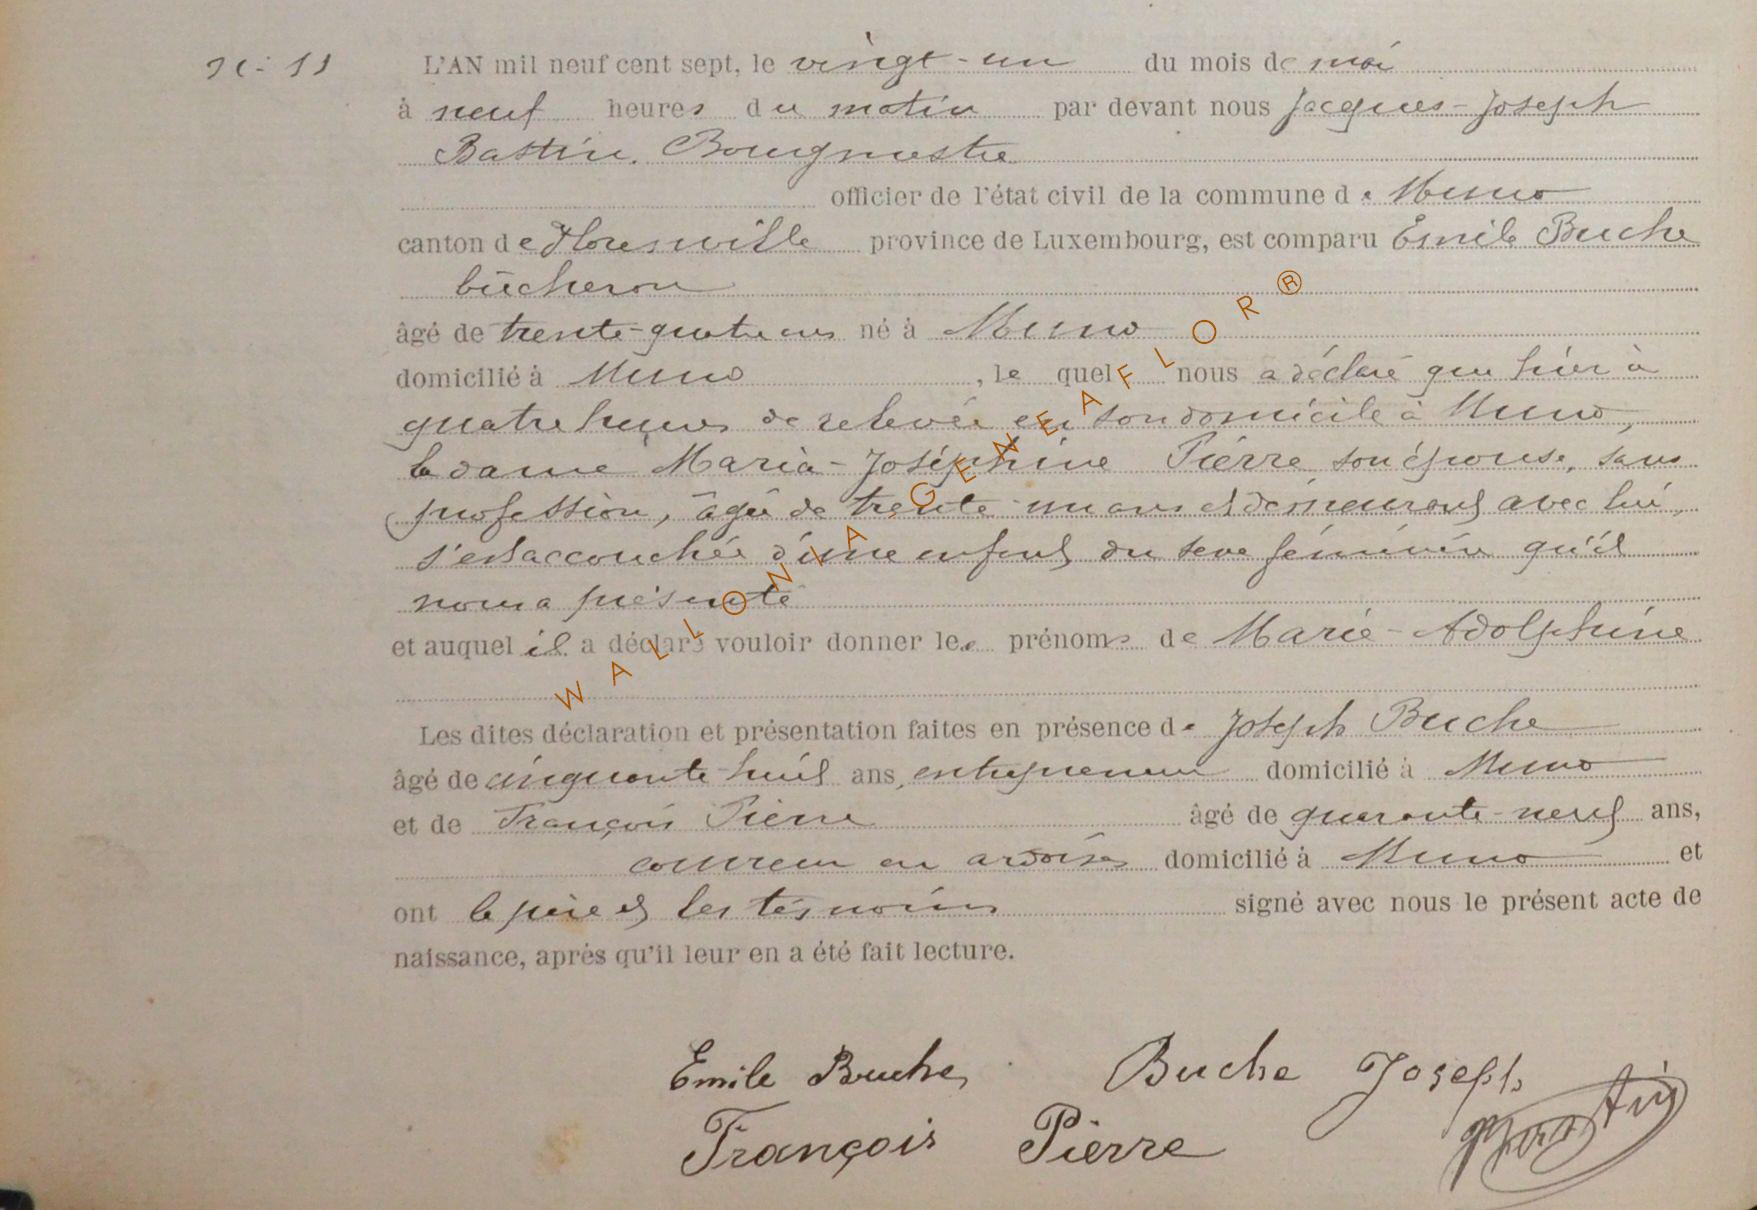 N: 11
L'AN mil neuf cent sept, le vingt-un du mois de mai
à neuf heures du matin par devant nous Jacques-Joseph
Bastin, Bourgmestre
officier de l'état civil de la commune de Muno
canton de Florenville province de Luxembourg, est comparu Emile Buche
bûcheron
âgé de trente-quatre ans né à Muno
domicilié à Muno, le quel nous a déclaré que hier à
quatre heures de relevée en son domicile à Muno,
la dame Maria-Joséphine Pierre son épouse, sans
profession, âgée de trente-un ans et demeurant avec lui,
s'est accouchée d'une enfant du sexe féminin qu'il
nous a présenté
et auquel il a déclaré vouloir donner les prénoms de Marie-Adolphine
Les dites déclaration et présentation faites en présence de Joseph Buche
âgé de cinquante-huit ans, entrepreneur domicilié à Muno
et de François Pierre âgé de quarante-neuf ans,
couvreur en ardoises domicilié à Muno et
ont le père et les témoins signé avec nous le présent acte de
naissance, après qu'il leur en a été fait lecture.
Emile Buche, Buche Joseph
François Pierre Bastin
WALLONIA GENEAFLOR®